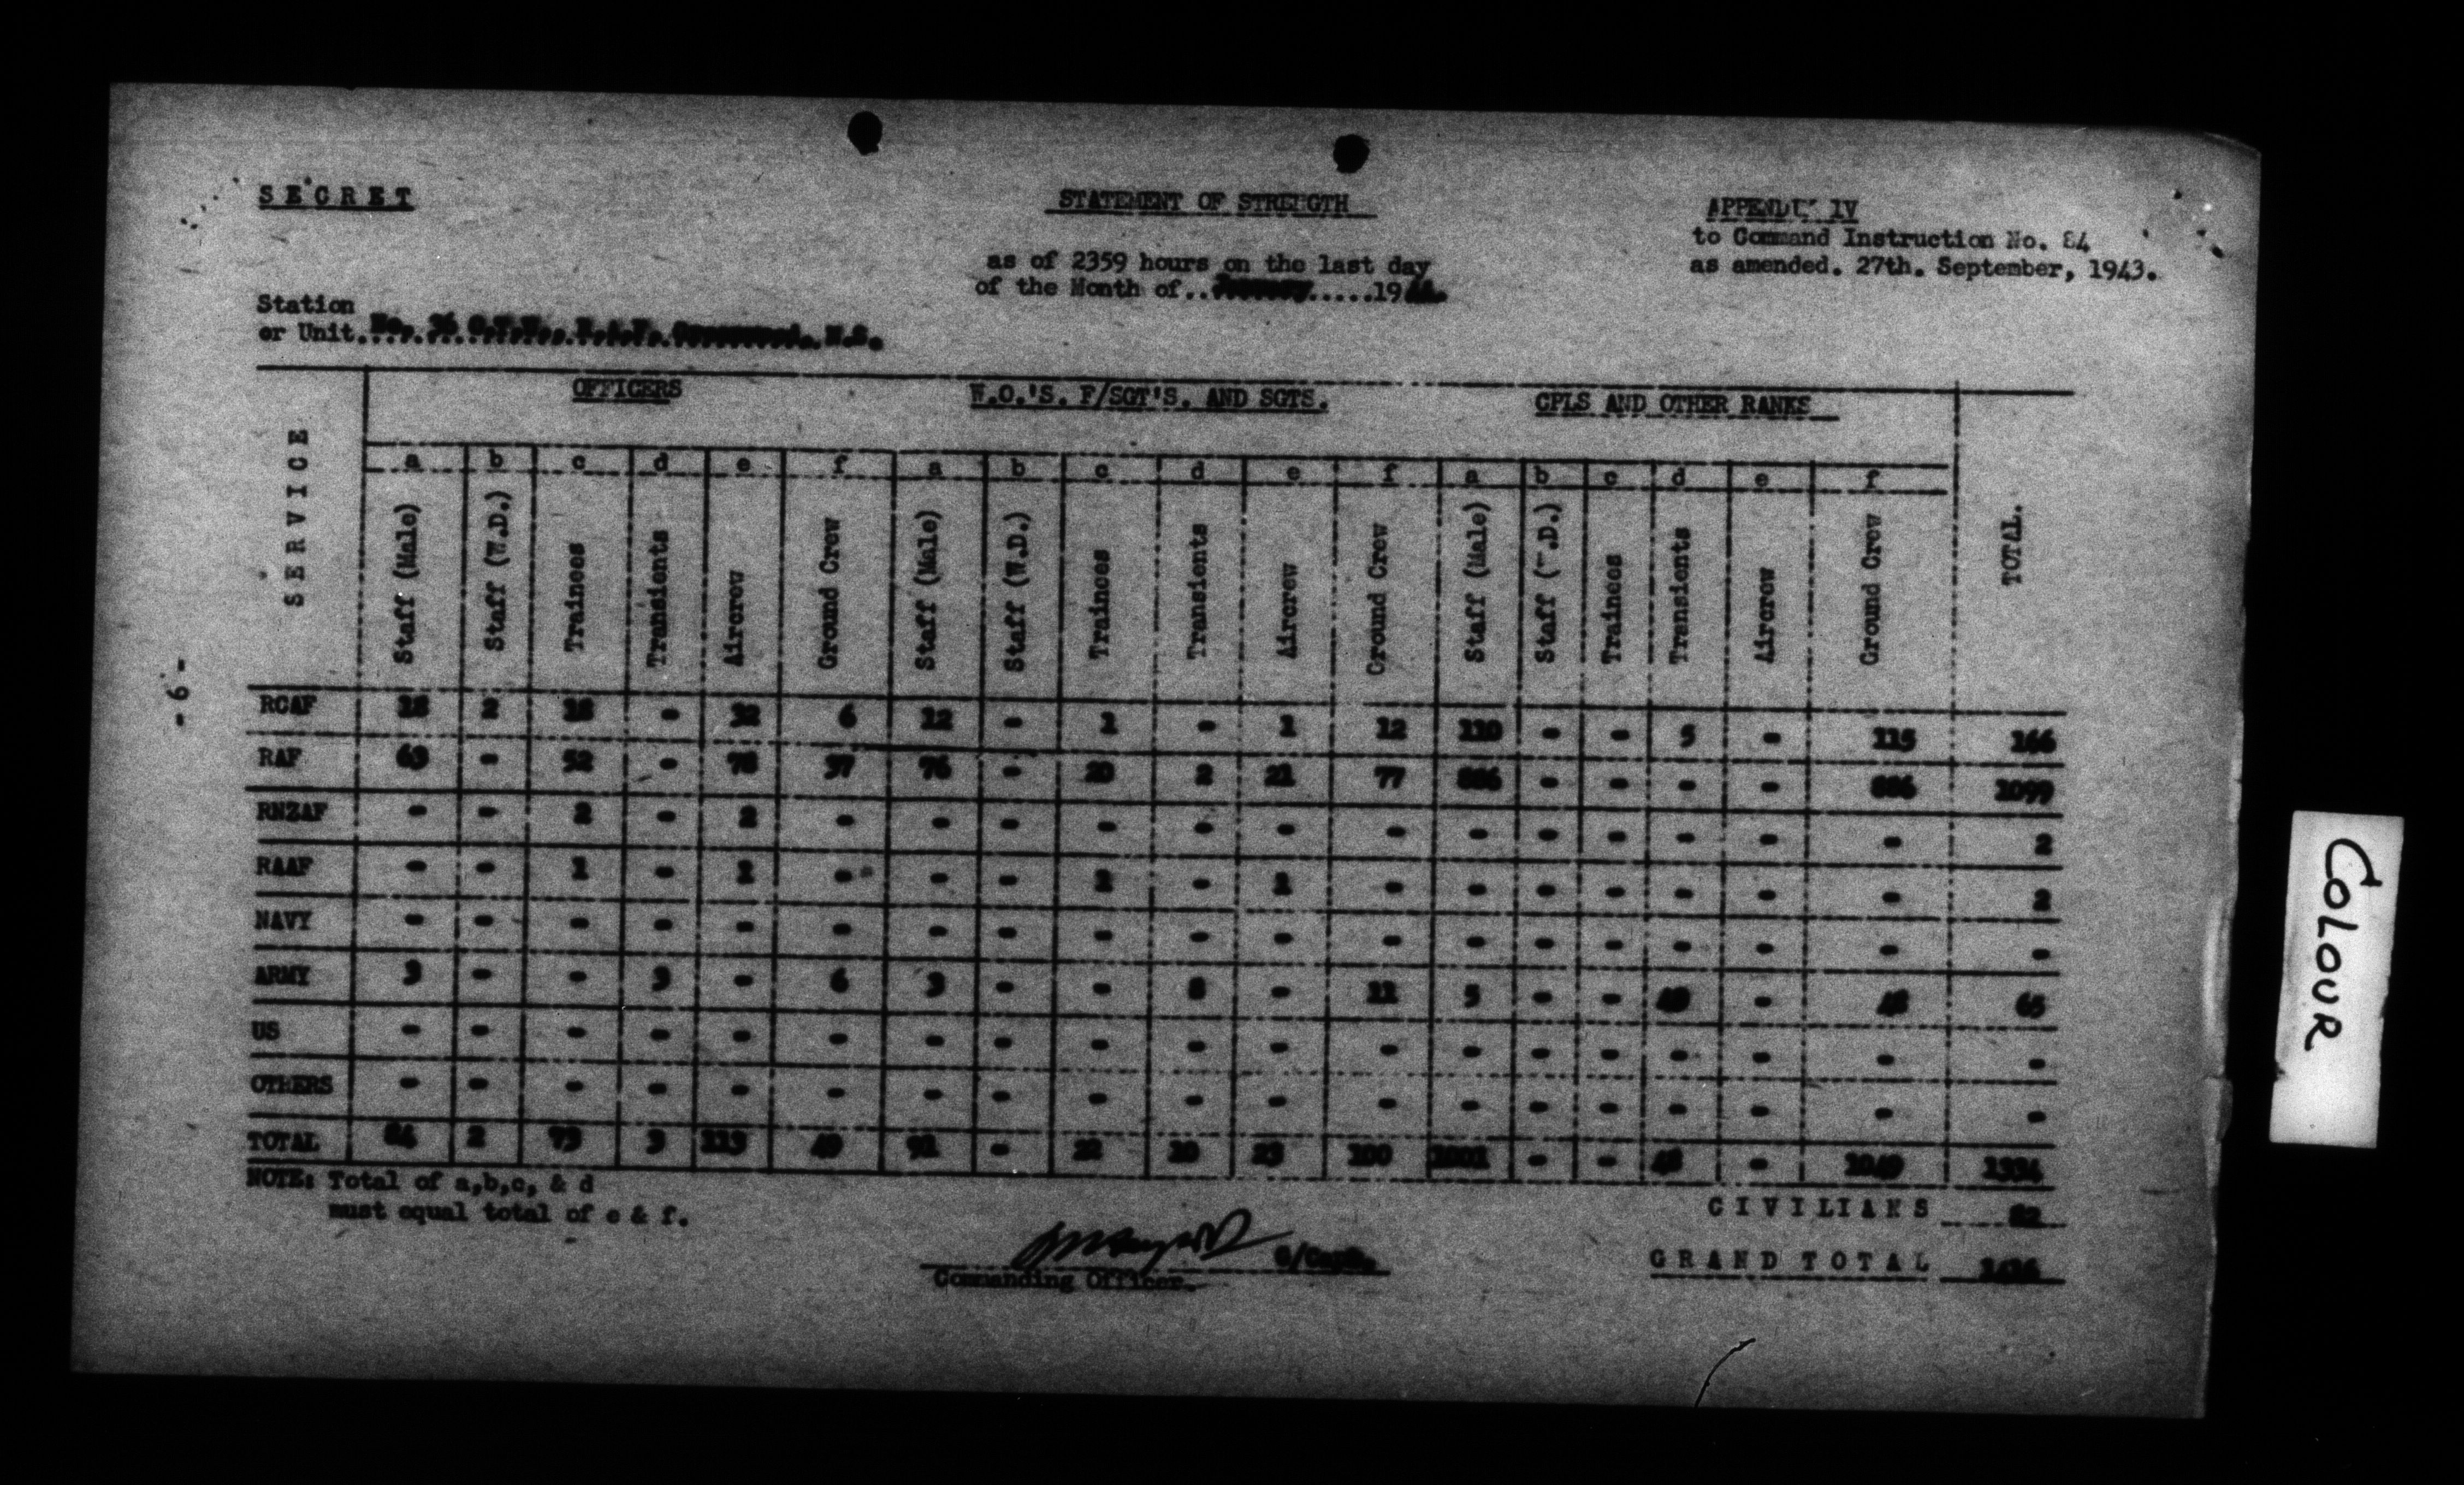 SECRET
STATEMENT OF STRENGTH
APPENDIX IV
to Command Instruction No. 84
as amended. 27th. September, 1943.
as of 2359 hours on the last day
of the Month of..January.....1944.
Station
or Unit No. 36 O.T.U., R.A.F. Greenwood, N.S.
SERVICE OFFICERS W.O.'S. F/SGT'S. AND SGTS. CPLS AND OTHER RANKS TOTAL.
a b c d e f a b c d e f a b c d e f
Staff (Male) Staff (W.D.) Trainees Transients Aircrew Ground Crew Staff (Male) Staff (W.D.) Trainees Transients Aircrew Ground Crew Staff (Male) Staff (W.D.) Trainees Transients Aircrew Ground Crew
- 6 -
RCAF 18 2 18 - 32 6 12 - 1 - 1 12 110 - - 5 - 115 166
RAF 63 - 52 - 78 37 76 - 20 2 21 77 886 - - - - 886 1099
RNZAF - - 2 - 2 - - - - - - - - - - - - - 2
RAAF - - 1 - 1 - - - 1 - 1 - - - - - - - 2
NAVY - - - - - - - - - - - - - - - - - - -
ARMY 3 - - 3 - 6 3 - - 8 - 11 5 - - 43 - 48 65
US - - - - - - - - - - - - - - - - - - -
OTHERS - - - - - - - - - - - - - - - - - - -
TOTAL 84 2 73 3 113 49 91 - 22 10 23 100 1001 - - 48 - 1049 1334
NOTE: Total of a,b,c, & d
must equal total of e & f.
CIVILIANS 82
G/Capt.
Commanding Officer.
GRAND TOTAL 1416
COLOUR